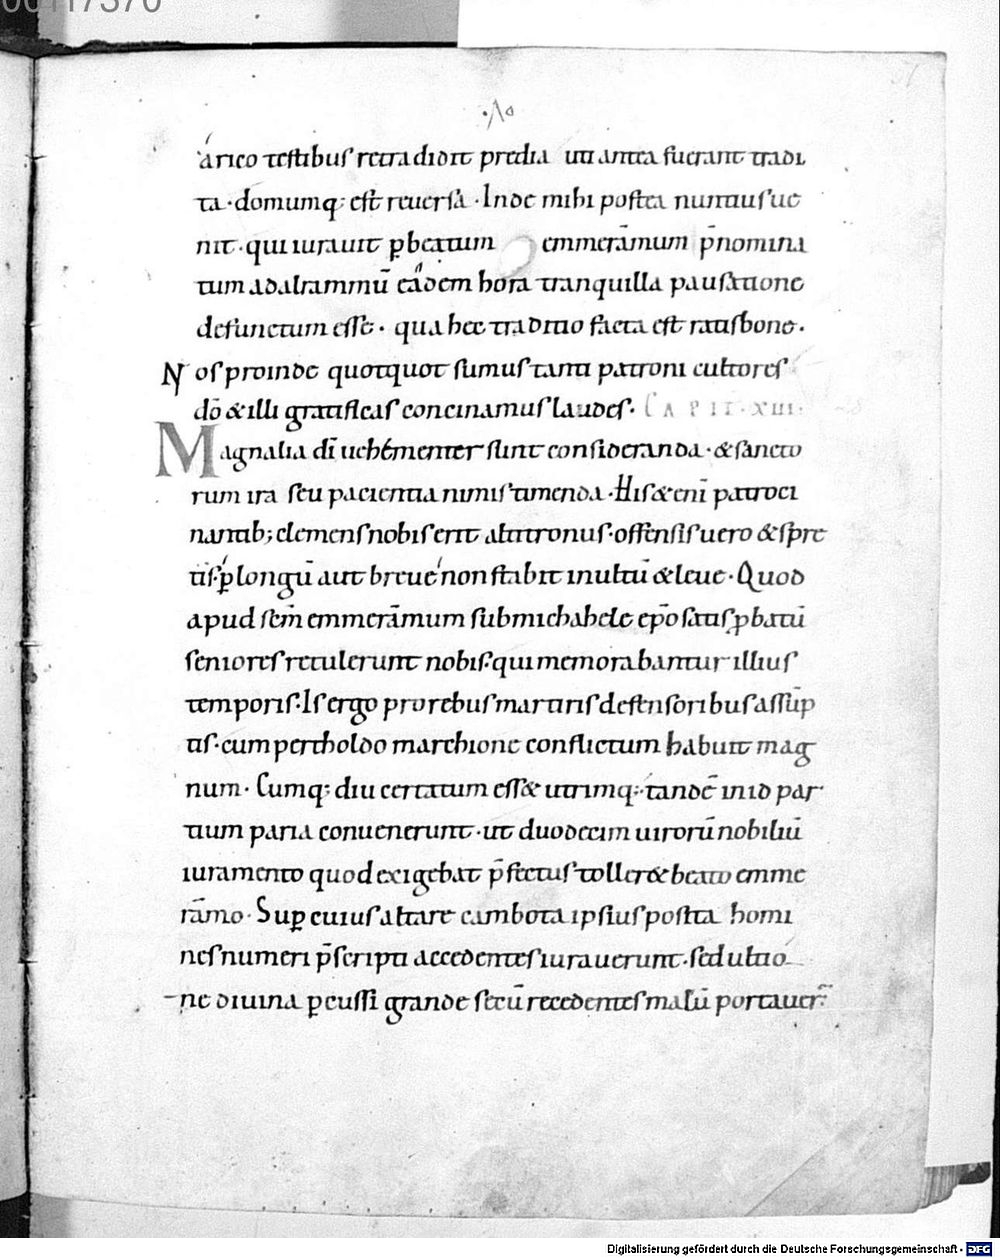 00117370
57
árico testibus retradidit predia uti antea fuerant tradi
ta · domumq; est reuersa · Inde mihi postea nuntius ue
nit · qui iurauit ꝑ beatum emmerāmum p̄nomina
tum adalrammū eádem hora tranquilla pausatione
defunctum esse · qua hec traditio facta est ratisbone ·
Nos proinde quotquot sumus tanti patroni cultores
dō & illi gratificas concinamus laudes · CAPIT · XIII ·
Magnalia dī uehémenter sunt consideranda · & sancto
rum ira seu pacientia nimis timenda · His & enī patroci
nantib; clemens nobis erit altitronus · offensis uero & spre
tis ꝑ longū aut breue non stabit inultū & leue · Quod
apud sc̄m emmerāmum sub michahele ep̄o satis ꝓbatū
seniores retulerunt nobis · qui memorabantur illius
temporis · Is ergo pro rebus martiris defensoribus assūp
tis · cum pertholdo marchione conflictum habuit mag
num · Cumq; diu certatum ess& utrimq; · tandē in id par
tium paria conuenerunt · ut duodecim uirorū nobiliū
iuramento quod exigebat p̄fectus toller& beato emme
rāmo · Suꝑ cuius altare cambota ipsius posita homi
nes numeri p̄scripti accedentes iurauerunt · sed ultio
ne diuina ꝑcussi grande secū recedentes malū portauer̄
Digitalisierung gefördert durch die Deutsche Forschungsgemeinschaft - DFG